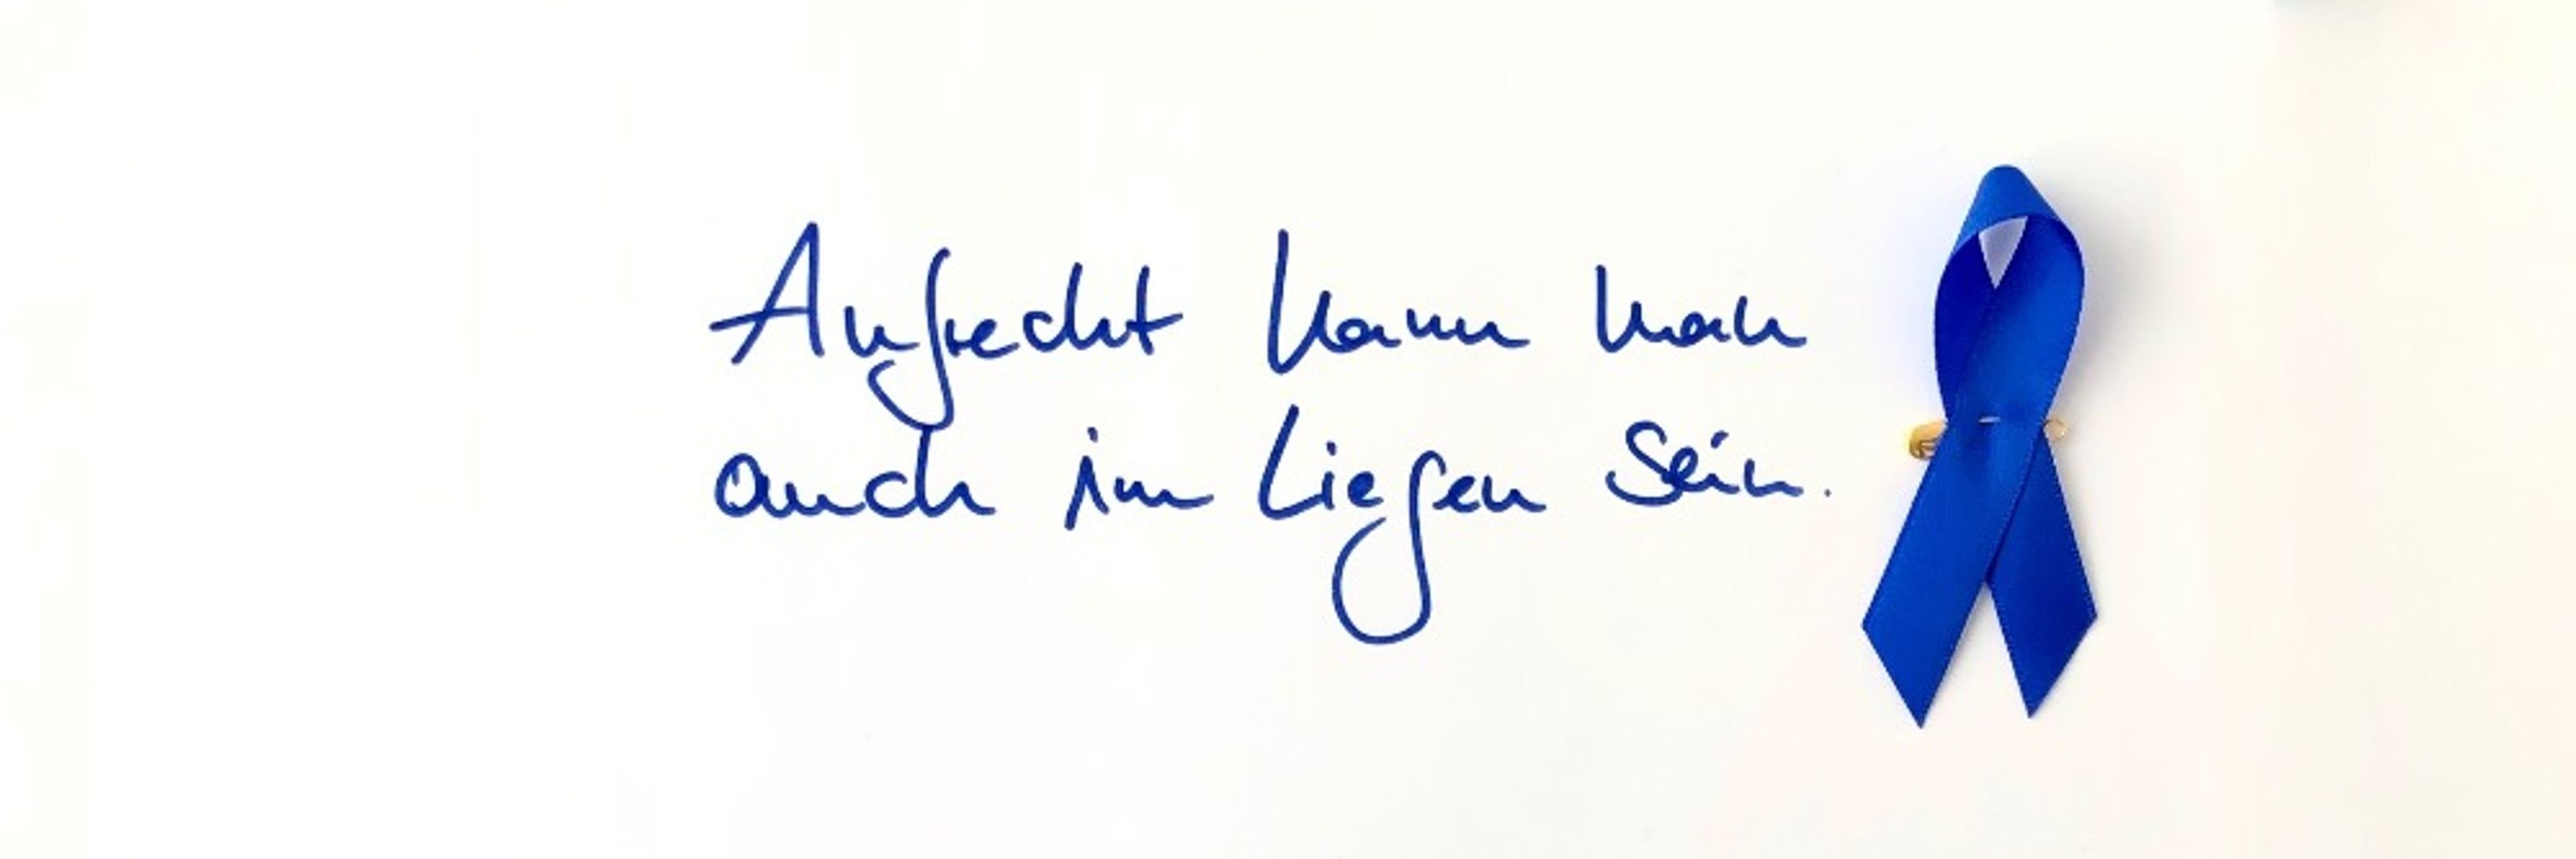 Aufrecht kann man
auch im Liegen sein.